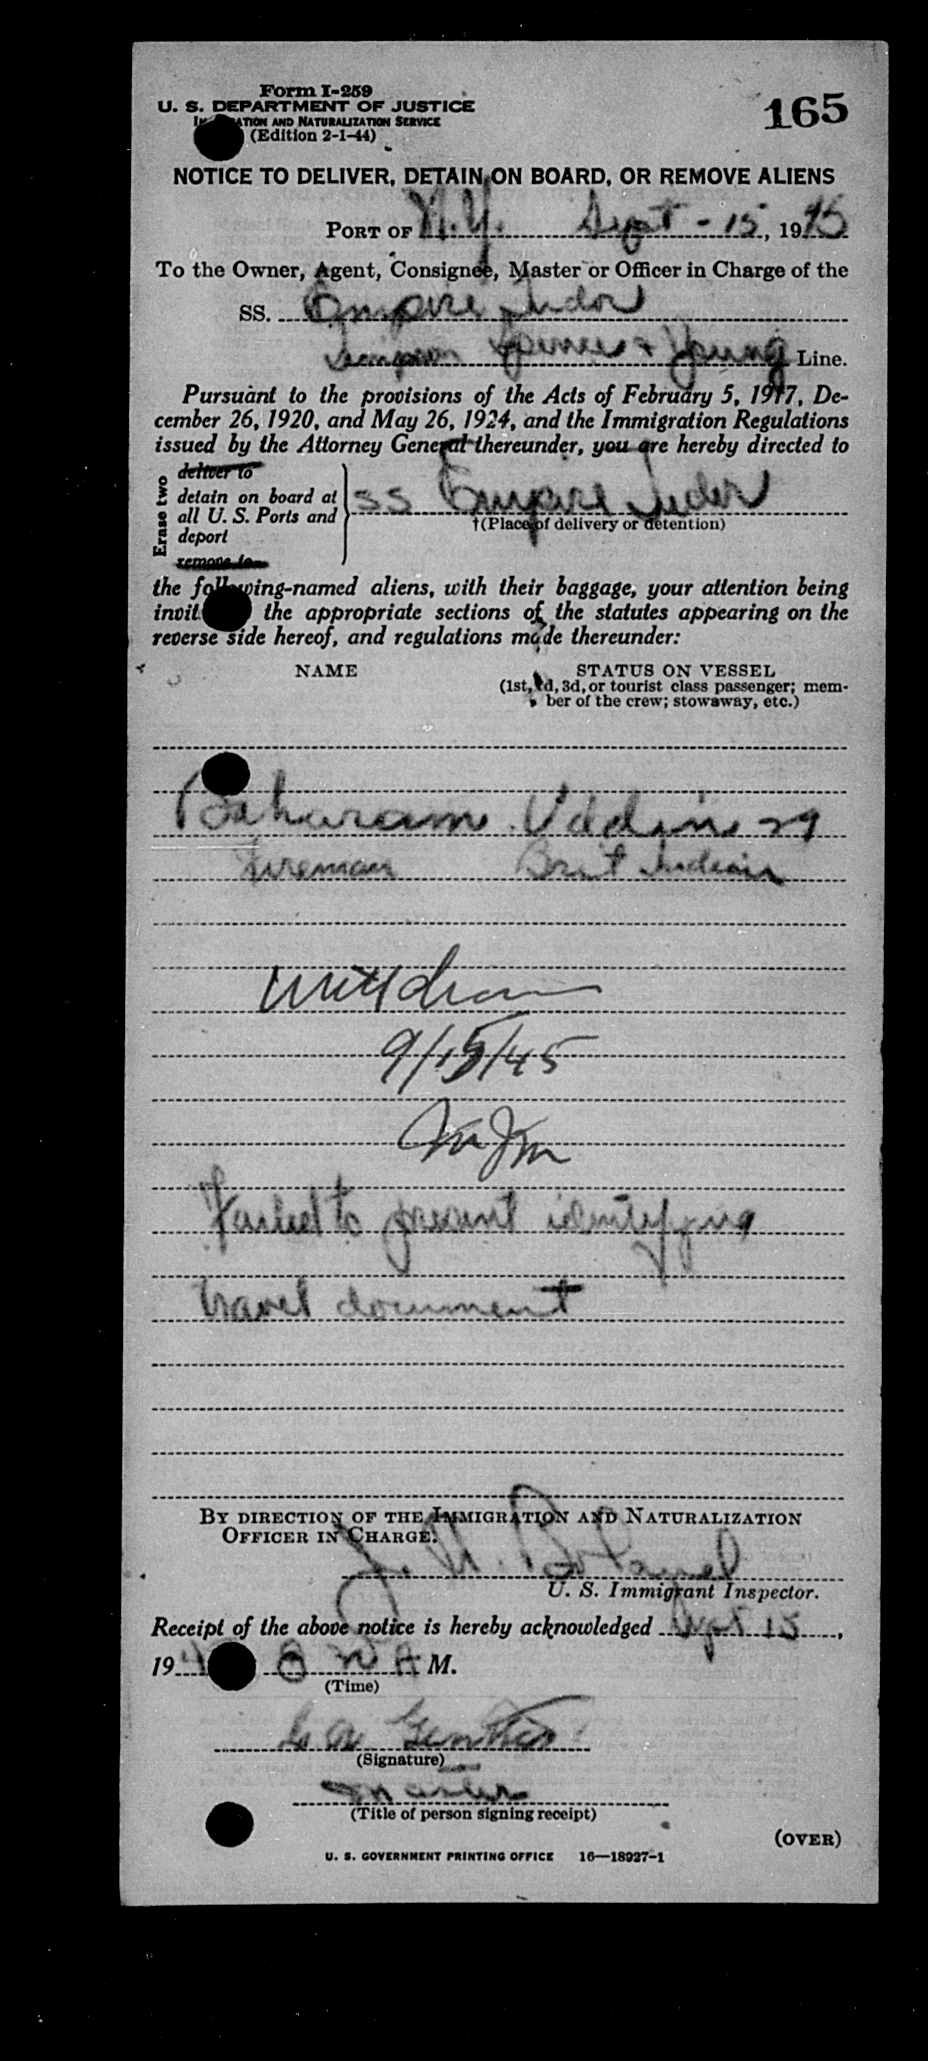 Form I-259
165
U. S. DEPARTMENT OF JUSTICE
IMMIGRATION AND NATURALIZATION SERVICE
(Edition 2-1-44)
NOTICE TO DELIVER, DETAIN ON BOARD, OR REMOVE ALIENS
PORT OF N.Y. Sept - 15, 1945
To the Owner, Agent, Consignee, Master or Officer in Charge of the
SS. Empire Tudor
Simpson Spence & Young Line.
Pursuant to the provisions of the Acts of February 5, 1917, De-
cember 26, 1920, and May 26, 1924, and the Immigration Regulations
issued by the Attorney General thereunder, you are hereby directed to
Erase two
deliver to
detain on board at
all U. S. Ports and
deport
remove to
SS Empire Tudor
†(Place of delivery or detention)
the following-named aliens, with their baggage, your attention being
invited to the appropriate sections of the statutes appearing on the
reverse side hereof, and regulations made thereunder:
NAME STATUS ON VESSEL
(1st, 2d, 3d, or tourist class passenger; mem-
ber of the crew; stowaway, etc.)
Baharam Uddin 29
Fireman Brit Indian
Withdrawn
9/15/45
Failed to present identifying
travel document
BY DIRECTION OF THE IMMIGRATION AND NATURALIZATION
OFFICER IN CHARGE:
U. S. Immigrant Inspector.
Receipt of the above notice is hereby acknowledged Sept 15,
194 8 A M.
(Time)
(Signature)
Master
(Title of person signing receipt)
(OVER)
U. S. GOVERNMENT PRINTING OFFICE 16—18927-1